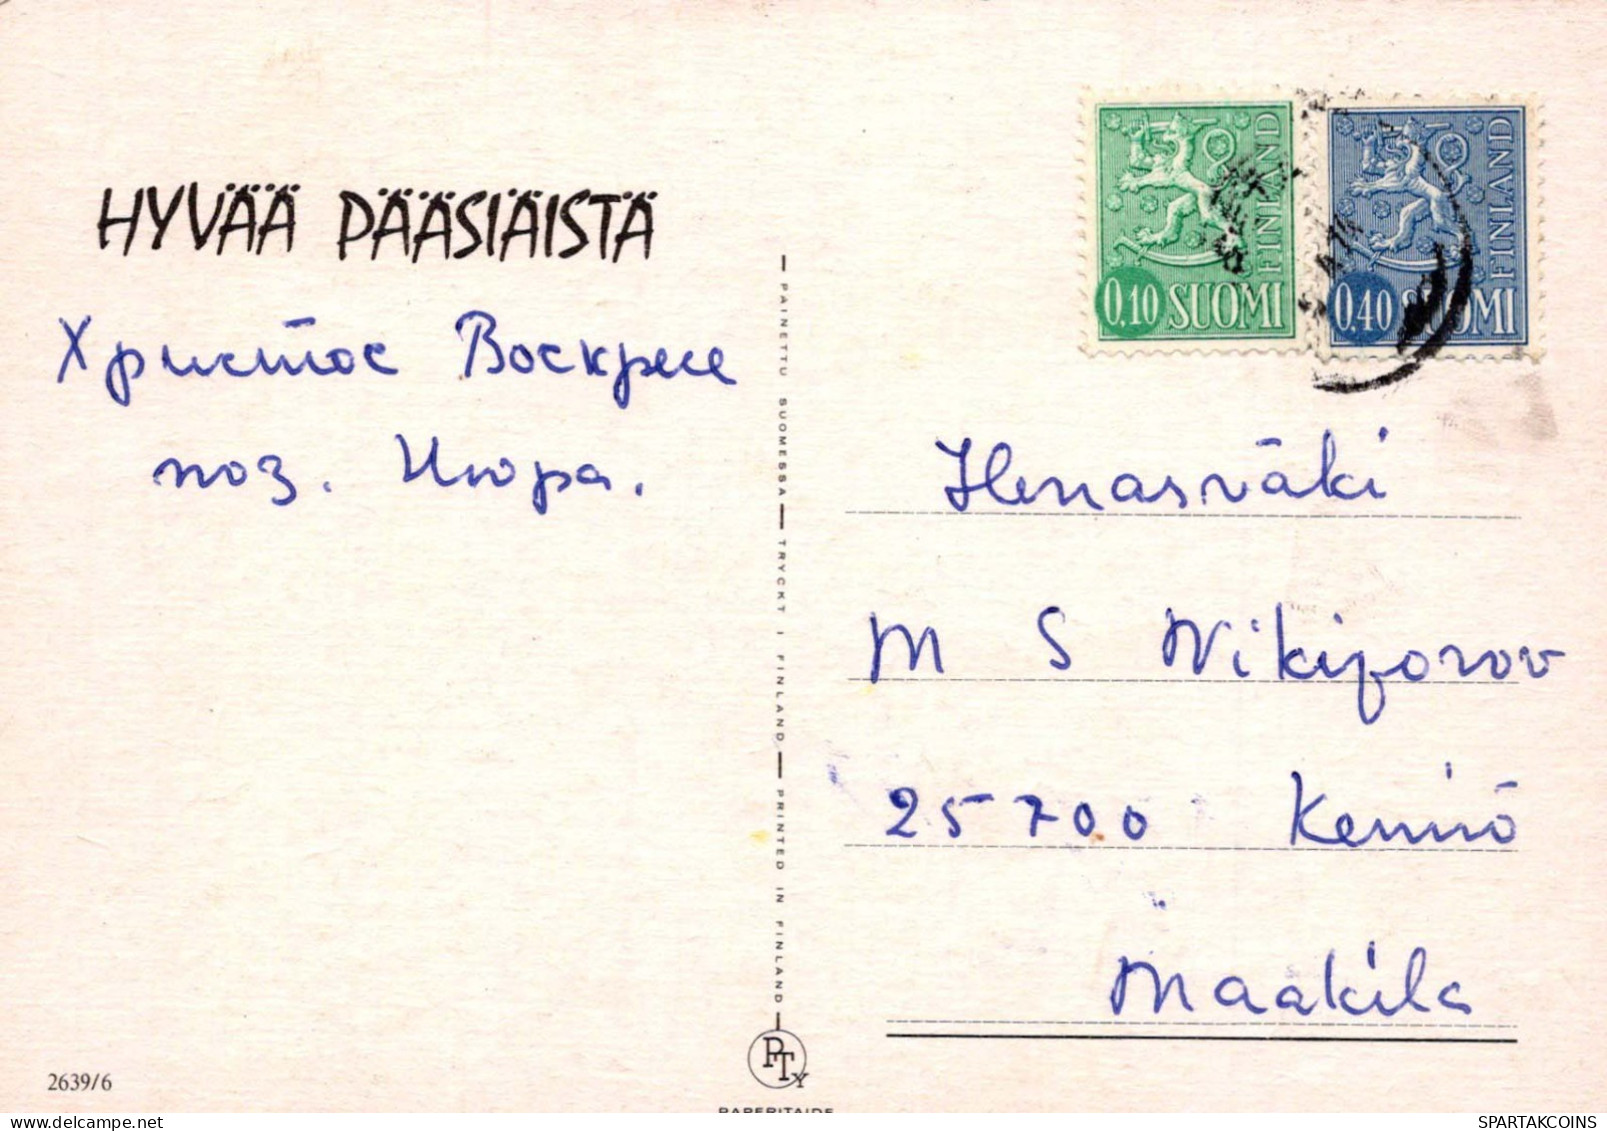 HYVÄÄ PÄÄSIÄISTÄ
Христос Воскресе
поз. Июра.
FINLAND
0,10 SUOMI
FINLAND
0,40 SUOMI
PAINETTU SUOMESSA — TRYCKT I FINLAND — PRINTED IN FINLAND
Henasväki
M S Nikiforov
25700 Kemiö
Maakila
2639/6
PTY
PAPERITAIDE
SPARTAKCOINS